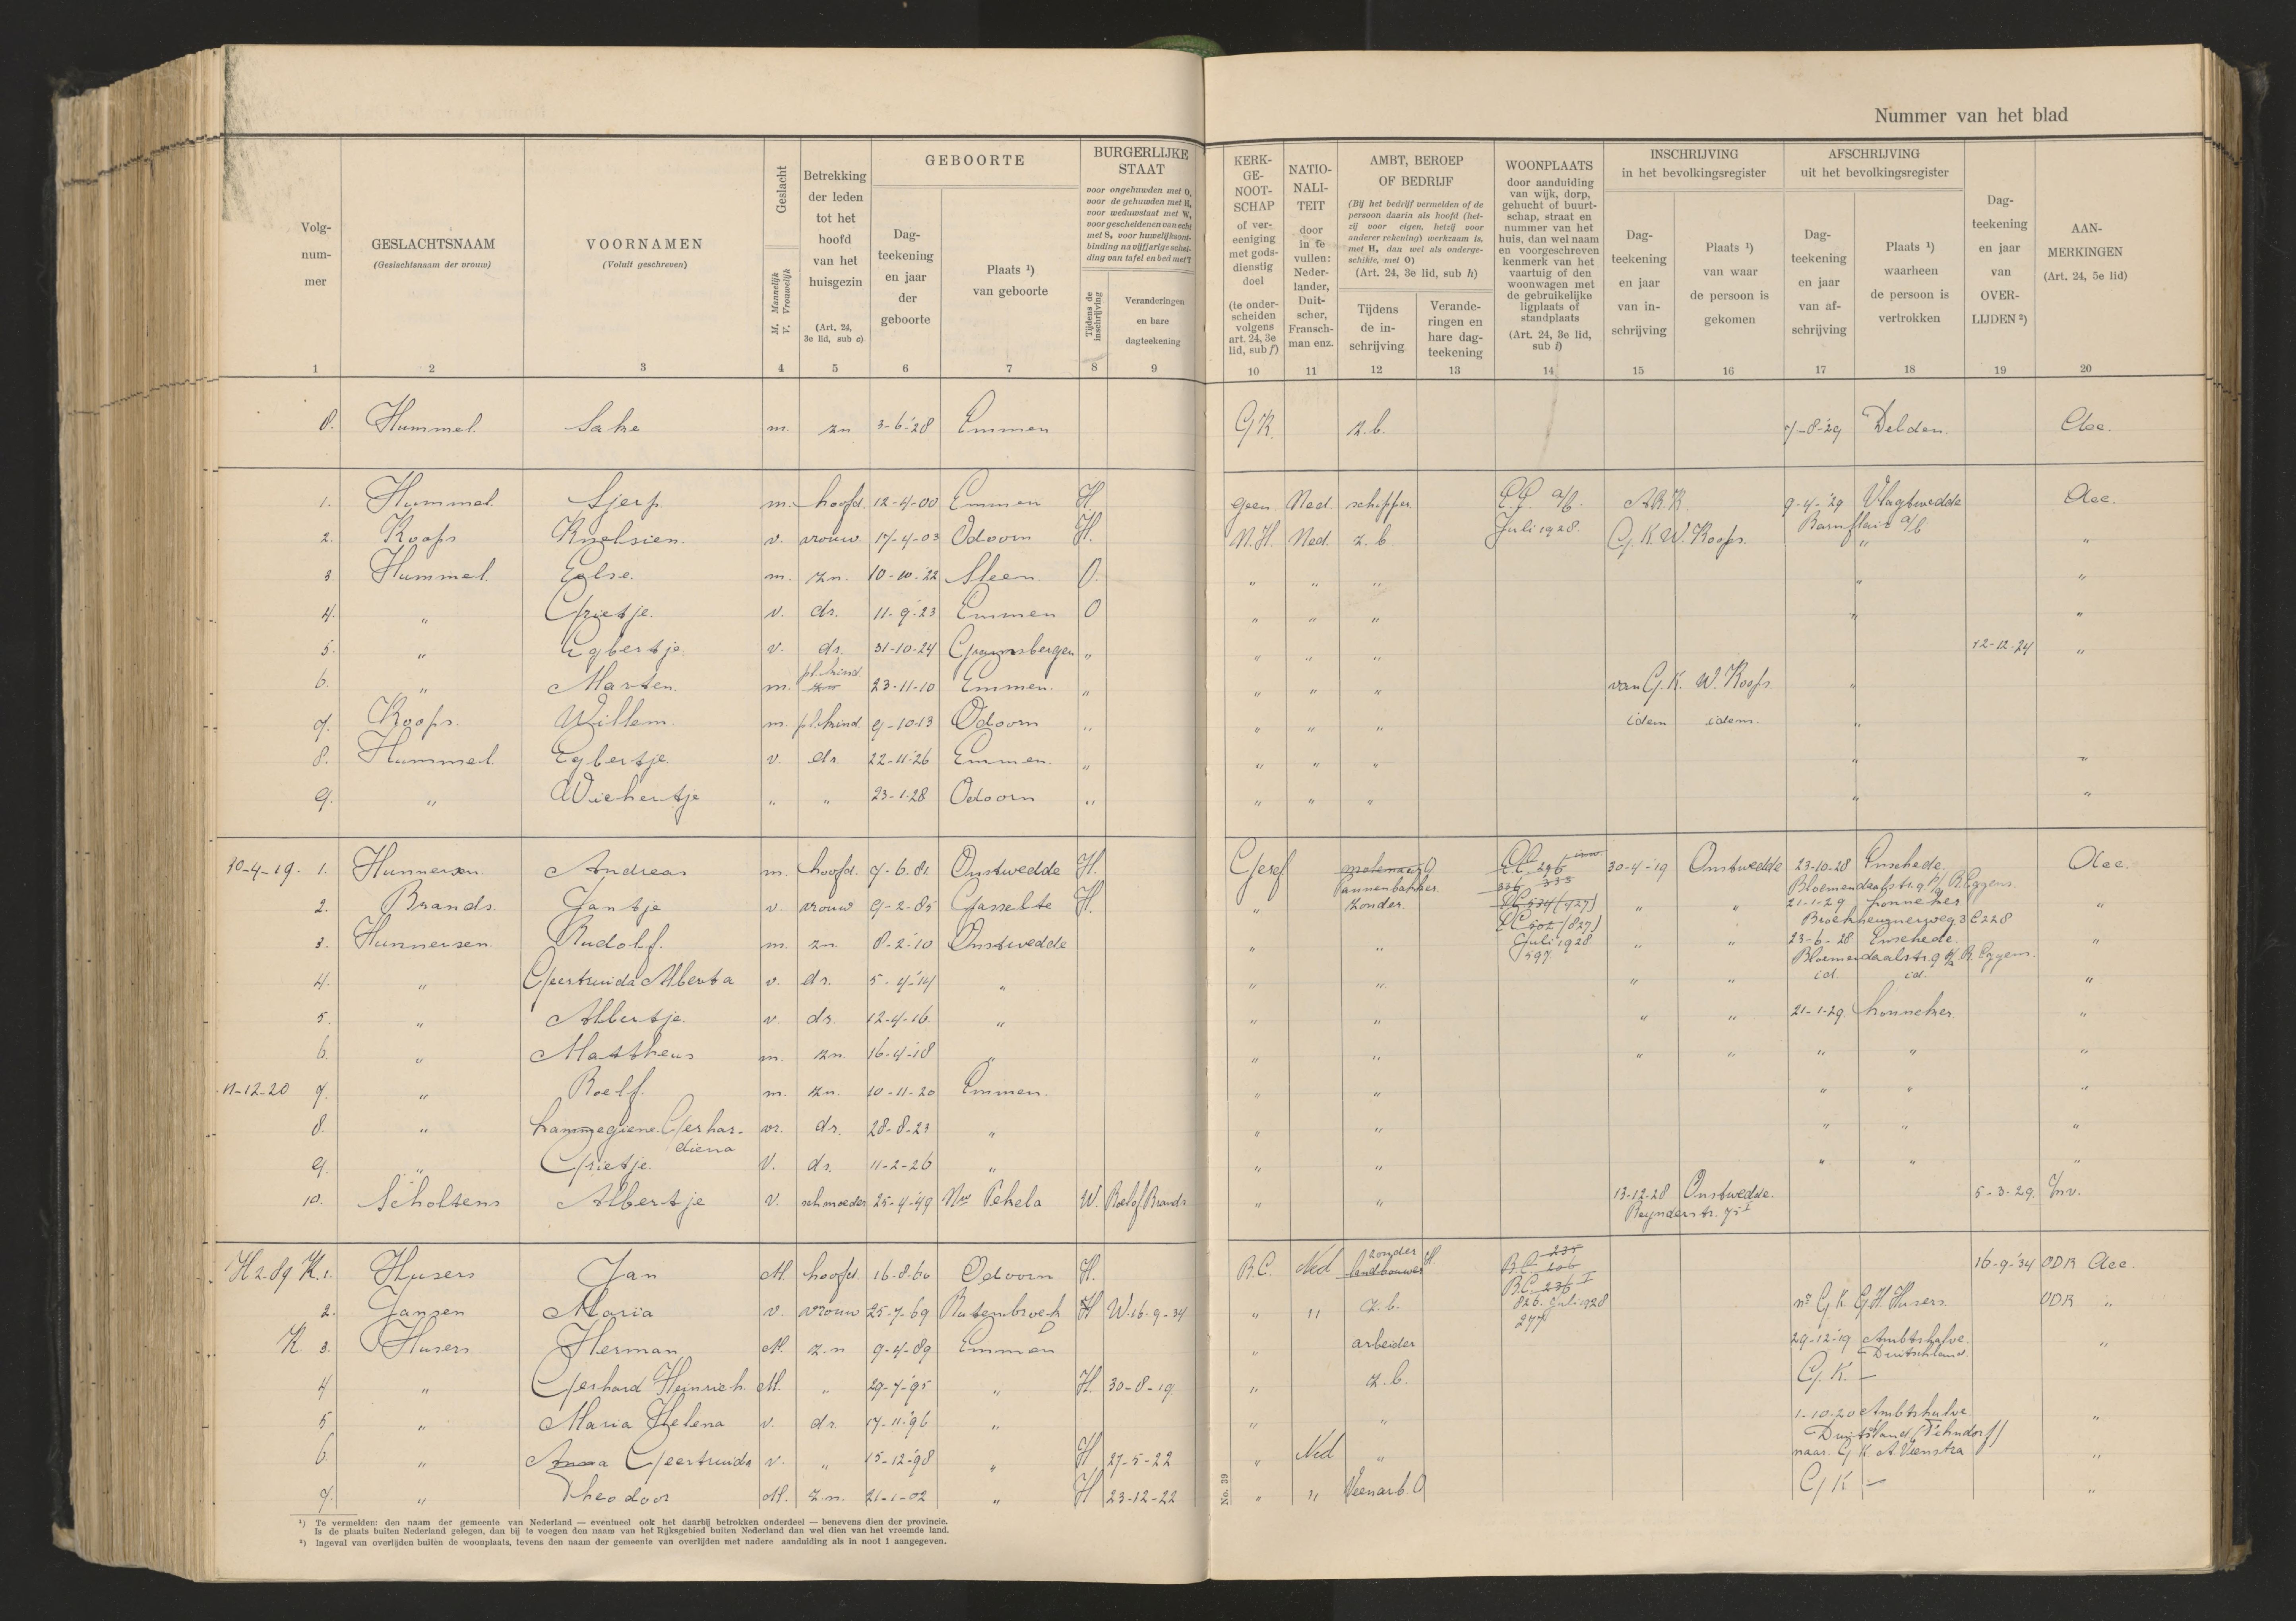 Nummer van het blad
Volg-
num-
mer
GESLACHTSNAAM
(Geslachtsnaam der vrouw)
VOORNAMEN
(Voluit geschreven)
Geslacht
M. Mannelijk
V. Vrouwelijk
Betrekking
der leden
tot het
hoofd
van het
huisgezin
(Art. 24,
3e lid, sub c)
GEBOORTE
Dag-
teekening
en jaar
der
geboorte
Plaats ¹)
van geboorte
BURGERLIJKE
STAAT
voor ongehuwden met O,
voor de gehuwden met H,
voor weduwstaat met W,
voor gescheidenen van echt
met S, voor huwelijksont-
binding na vijfjarige schei-
ding van tafel en bed met T
Tijdens de
inschrijving
Veranderingen
en hare
dagteekening
KERK-
GE-
NOOT-
SCHAP
of ver-
eeniging
met gods-
dienstig
doel
(te onder-
scheiden
volgens
art. 24, 3e
lid, sub f)
NATIO-
NALI-
TEIT
door
in te
vullen:
Neder-
lander,
Duit-
scher,
Fransch-
man enz.
AMBT, BEROEP
OF BEDRIJF
(Bij het bedrijf vermelden of de
persoon daarin als hoofd (het-
zij voor eigen, hetzij voor
anderer rekening) werkzaam is,
met H, dan wel als onderge-
schikte, met O)
(Art. 24, 3e lid, sub h)
Tijdens
de in-
schrijving
Verande-
ringen en
hare dag-
teekening
WOONPLAATS
door aanduiding
van wijk, dorp,
gehucht of buurt-
schap, straat en
nummer van het
huis, dan wel naam
en voorgeschreven
kenmerk van het
vaartuig of den
woonwagen met
de gebruikelijke
ligplaats of
standplaats
(Art. 24, 3e lid,
sub l)
INSCHRIJVING
in het bevolkingsregister
Dag-
teekening
en jaar
van in-
schrijving
Plaats ¹)
van waar
de persoon is
gekomen
AFSCHRIJVING
uit het bevolkingsregister
Dag-
teekening
en jaar
van af-
schrijving
Plaats ¹)
waarheen
de persoon is
vertrokken
Dag-
teekening
en jaar
van
OVER-
LIJDEN ²)
AAN-
MERKINGEN
(Art. 24, 5e lid)
1 2 3 4 5 6 7 8 9 10 11 12 13 14 15 16 17 18 19 20
8. Hummel. Sake m. zn 3-6-'28 Emmen G.K. z.b. 7-8-'29 Delden.
1. Hummel. Sjerp m. hoofd. 12-4-00 Emmen H. geen Ned. schipper. E.C. a/b. 9-4-'29 Vlagtwedde
2. Koops Knelsien. v. vrouw 17-4-03 Odoorn H. N.H. Ned. z.b. Juli 1928. G.K. W. Koops. a/b "
3. Hummel Eelse. m. zn. 10-10-'22 Sleen O. " " " " "
4. " Grietje. v. dr. 11-9-23 Emmen O " " " " "
5. " Egbertje. v. dr. 31-10-24 Gramsbergen " " " " 12-12-24 "
6. " Marten. m. pl.kind. 23-11-10 Emmen. " " " " van G.K. W. Koops. "
7. Koops. Willem. m. pl.kind. 9-10-13 Odoorn " " " " idem idem. "
8. Hummel Egbertje v. dr. 22-11-26 Emmen. " " " " " "
9. " Wichertje " " 23-1-28 Odoorn " " " " " "
30-4-19. 1. Hunnersen Andreas m. hoofd. 7-6-81. Onstwedde H. Geref O 30-4-19 Onstwedde 23-10-28 Enschede
Pannenbakker. 336 335 Bloemendaalstr. 9 R. Eggens.
2. Brands. Jantje v. vrouw 9-2-85 Gasselte H. " zonder. " " 21-1-29 Lonneker "
3. Hunnersen. Rudolf. m. zn. 8-2-10 Onstwedde " " Juli 1928 597 " " 23-6-28 Enschede. "
Bloemendaalstr. 9 R. Eggens.
4. " Geertruida Alberta v. dr. 5-4-14 " " " " " id. id. "
5. " Albertje. v. dr. 12-4-16. " " " " " 21-1-29. Lonneker. "
6. " Mattheus m. zn. 16-4-18 " " " " " " " "
11-12-20 7. " Roelf. m. zn. 10-11-20 Emmen. " " " " "
8. " Gerhar-
diena vr. dr. 28-8-23 " " " " " "
9. " Grietje. V. dr. 11-2-26 " " " " " "
10. Scholtens Albertje V. schmoeder 25-4-'49 Nw Pekela W. Roelof Brands " " 13-12-28 Onstwedde. 5-3-29.
H 2.89 K. 1. Husers Jan M. hoofd. 16-8-60 Odoorn H. R.C. Ned zonder landbouwer H. 16-9-'34 ODR
2. Jansen Maria v. vrouw 25-7-69 Rutenbroek H W.16-9-34 " " z.b. 826 Juli 1928 277 nr G.K. G.H. Husers. ODR "
K 3. Husers Herman M. z.n 9-4-89 Emmen " arbeider 29-12-'19 Ambtshalve
Duitschland. "
4 " Gerhard Heinrich. M. " 29-7-'95 " H. 30-8-19 " z.b. G.K. —
5 " Maria Helena v. dr. 17-11-'96 " " " 1-10-20 Ambtshalve
"
6. " Anna Geertruida v. " 15-12-'98 " H 27-5-22 " Ned " naar G K A. Veenstra "
7. " Theodoor M. z.n. 21-1-02 " H 23-12-22 " " Veenarb. O G K — "
No. 39
¹) Te vermelden: den naam der gemeente van Nederland — eventueel ook het daarbij betrokken onderdeel — benevens dien der provincie.
Is de plaats buiten Nederland gelegen, dan bij te voegen den naam van het Rijksgebied buiten Nederland dan wel dien van het vreemde land.
²) Ingeval van overlijden buiten de woonplaats, tevens den naam der gemeente van overlijden met nadere aanduiding als in noot 1 aangegeven.